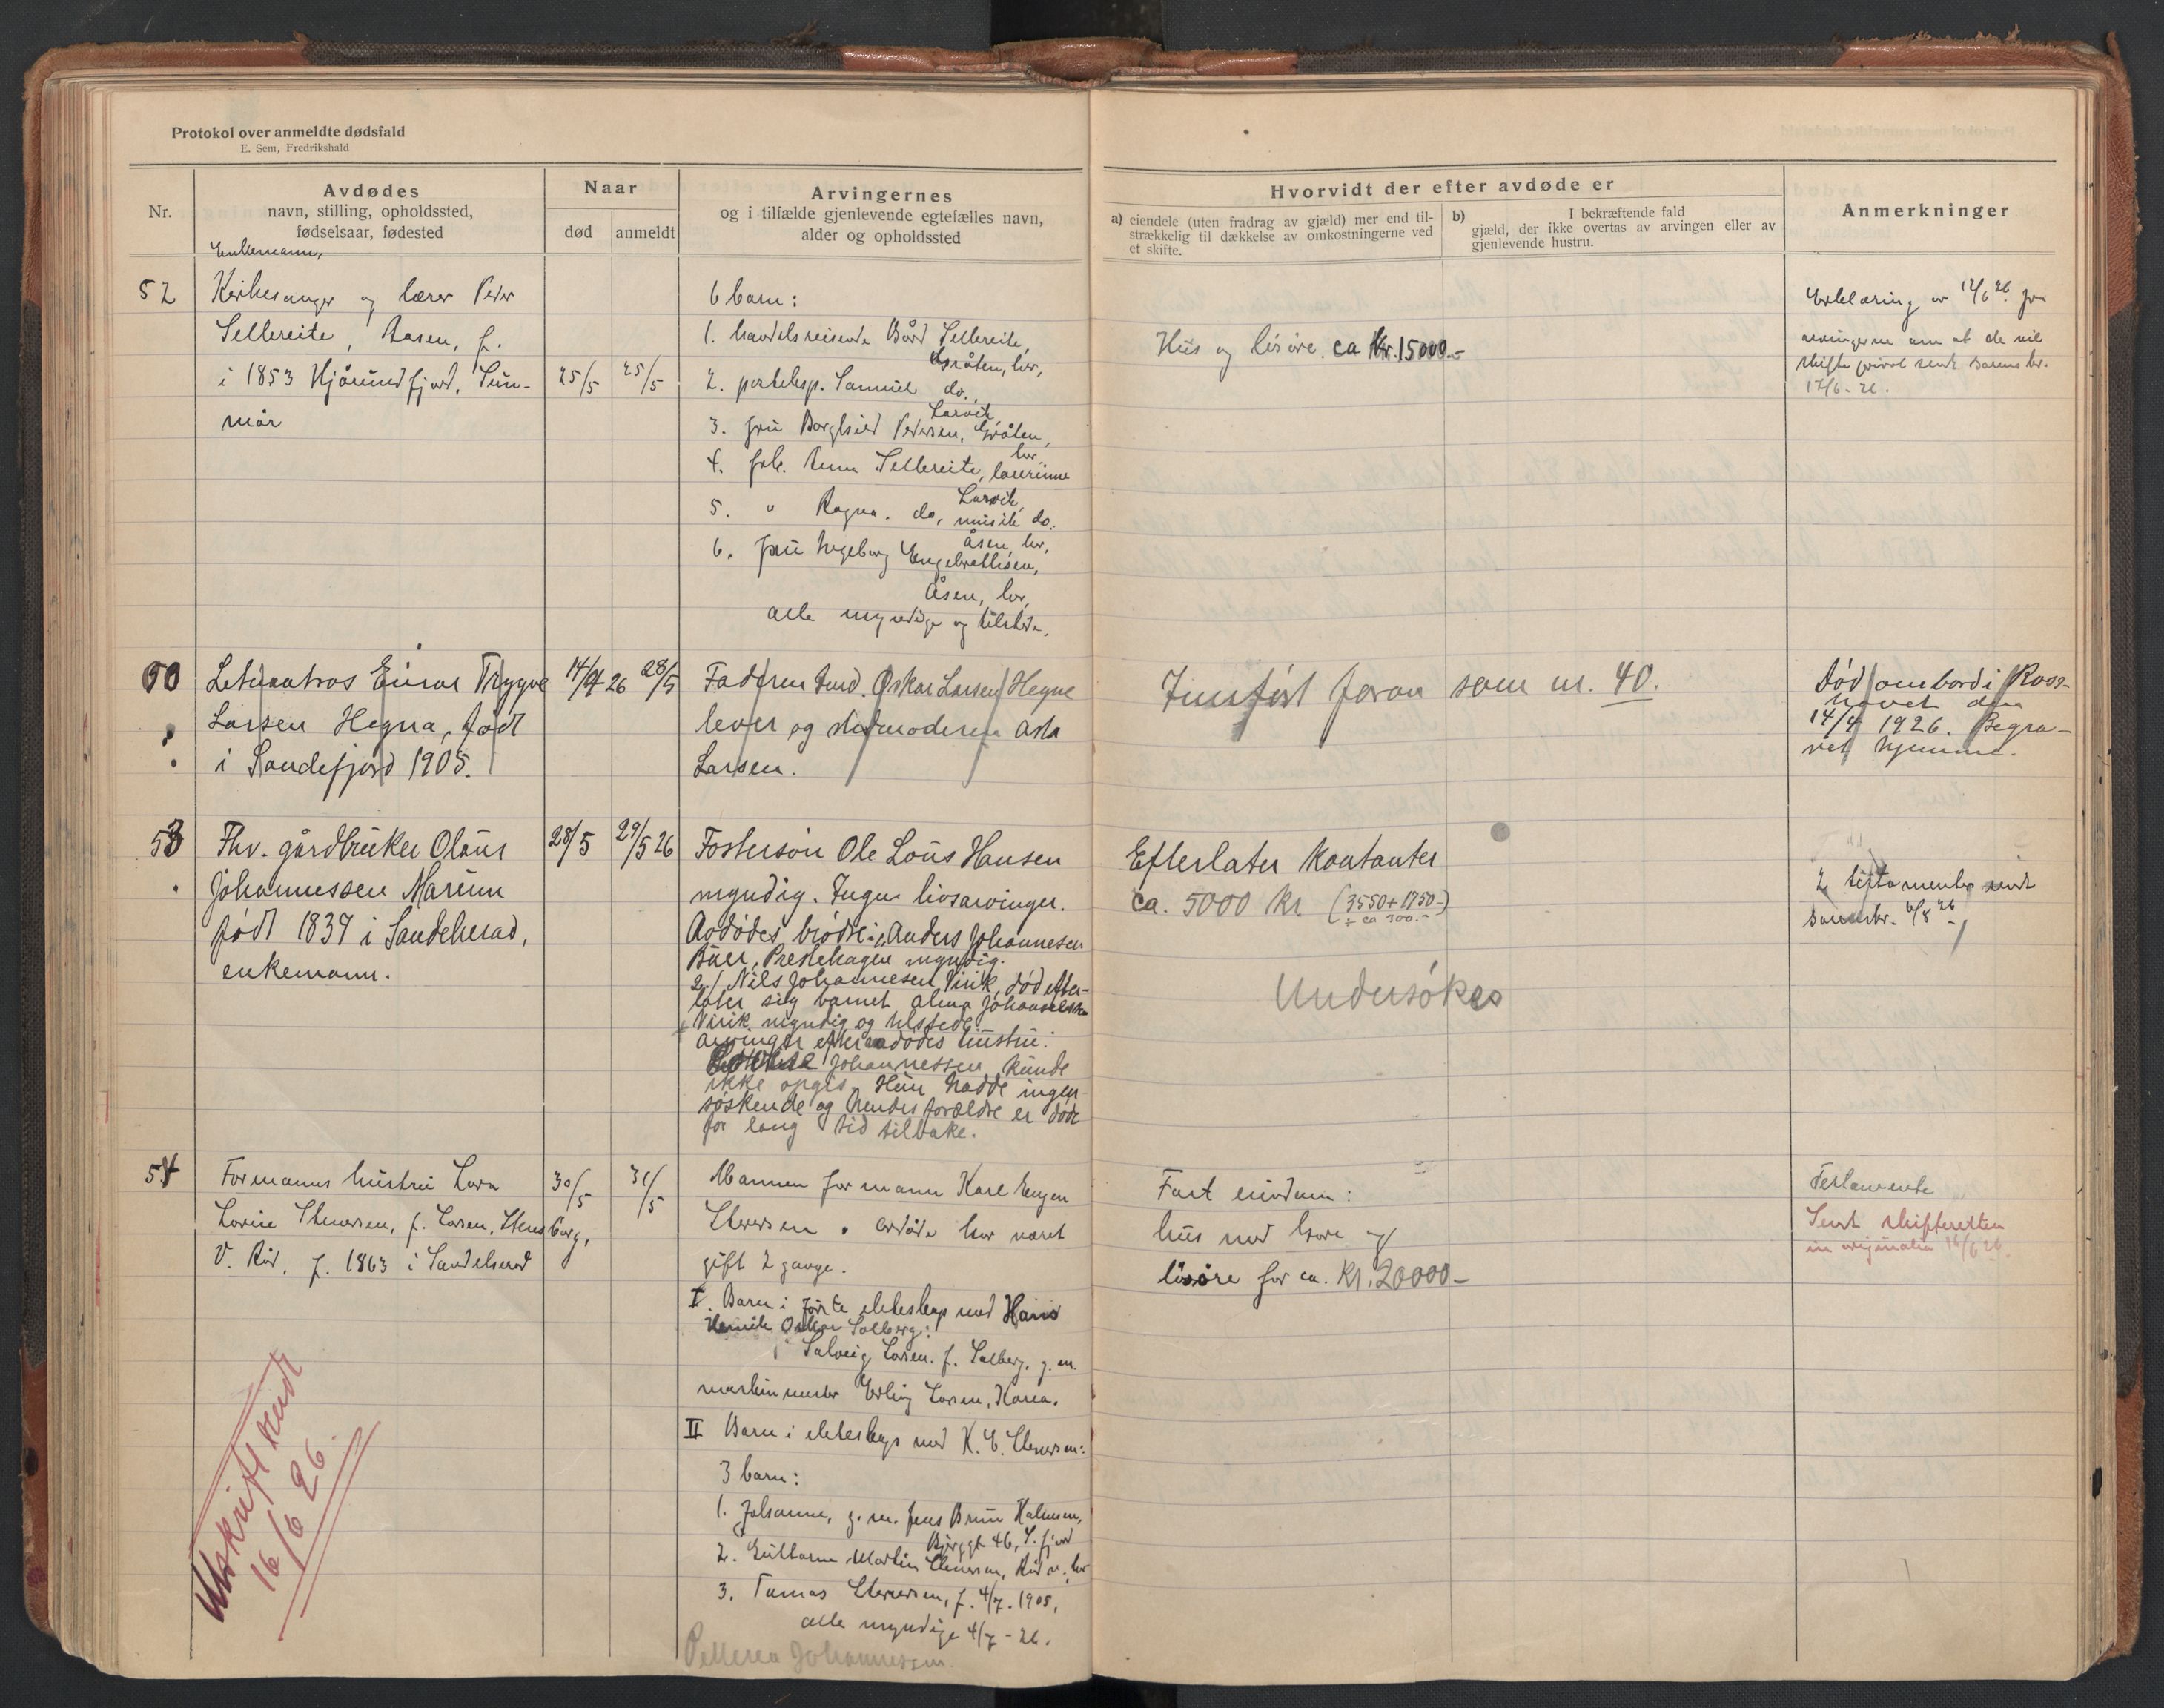 Protokol over anmeldte dødsfald
E. Sem, Fredrikshald
Nr.
Avdødes
navn, stilling, opholdssted,
fødselsaar, fødested
Naar
død
anmeldt
Arvingernes
og i tilfælde gjenlevende egtefælles navn,
alder og opholdssted
Hvorvidt der efter avdøde er
a) eiendele (uten fradrag av gjæld) mer end til-
strækkelig til dækkelse av omkostningerne ved
et skifte.
b) I bekræftende fald
gjæld, der ikke overtas av arvingen eller av
gjenlevende hustru.
Anmerkninger
Enkemann,
52 Kirkesanger og lærer Peder
Sellereite, Aasen, f.
i 1853 Hjørundfjord, Sun-
mør
25/5 25/5
6 barn:
1. handelsreisende Bård Sellereite,
Gråten, her,
2. posteksp. Samuel do.
Larvik
3. fru Borghild Pedersen, Gråten,
her
4. frk. Anna Sellereite, lærerinne
Larvik,
5. " Ragna. do, musik do.
Åsen, her,
6. fru Ingeborg Engebrethsen,
Åsen, her,
alle myndige og tilstede.
Hus og løsøre. ca Kr. 15000.-
Erklæring av 12/6 26. fra
arvingerne om at de vil
skifte privat sendt Sorenskr.
12/6-26.
50 Letmatros Einar Trygve
Larsen Hegna, født
i Sandefjord 1905.
14/4-26 28/5
Faderen Oskar Larsen Hegna
lever og stedmoderen Asta
Larsen.
Innført foran som nr. 40.
Død ombord i Ross-
havet den
14/4 1926. Begra-
vet hjemme.
53 Fhv. gårdbruker Olaus
Johannessen Marum
født 1839 i Sandeherad,
enkemann.
28/5 29/5 26
Fostersøn Ole Louis Hansen
myndig. Ingen livsarvinger.
Avdødes brødre: 1, Anders Johannesen
Buer, Prestehagen myndig.
2/ Nils Johannesen Virik, død efter-
later sig barnet Alma
Virik myndig og tilstede.
Arvinger efter avdødes hustru:
Johannessen kunde
ikke opgis. Hun hadde ingen
søskende og hendes forældre er døde
for lang tid tilbake.
Efterlater kontanter
ca. 5000 kr (3550+1750-)
÷ ca 300.-
Undersøkes
2 testamenter sendt
Sorenskr. 6/8 26
54 Formanns hustru Lara
Lovise Stenersen, f. Larsen, Stensborg,
V. Rød, f. 1863 i Sandeherad
30/5 31/5
Mannen formann Karl Eugen
Stenersen. Avdøde har været
gift 2 gange.
I. Barn i første ekteskap med Hans
Henrik Oskar Solberg:
Solveig Larsen. f. Solberg, g. m.
maskinmester Erling Larsen, Korea.
II Barn i ekteskap med K. E. Stenersen:
3 barn:
1. Johanne, g. m. Jens Brun Halvorsen,
Bjerggt 46, S. fjord
2. Guttorm Martin Stenersen, Rød v., her
3. Tomas Stenersen, f. 4/7. 1905,
alle myndige 4/7-26.
Pellerea Johannessen
Fast eiendom:
hus med have og
løsøre for ca. Kr. 20000-
Testamente
Sendt skifteretten
in originalia 16/6 26.
Utskrift sendt
16/6 26.